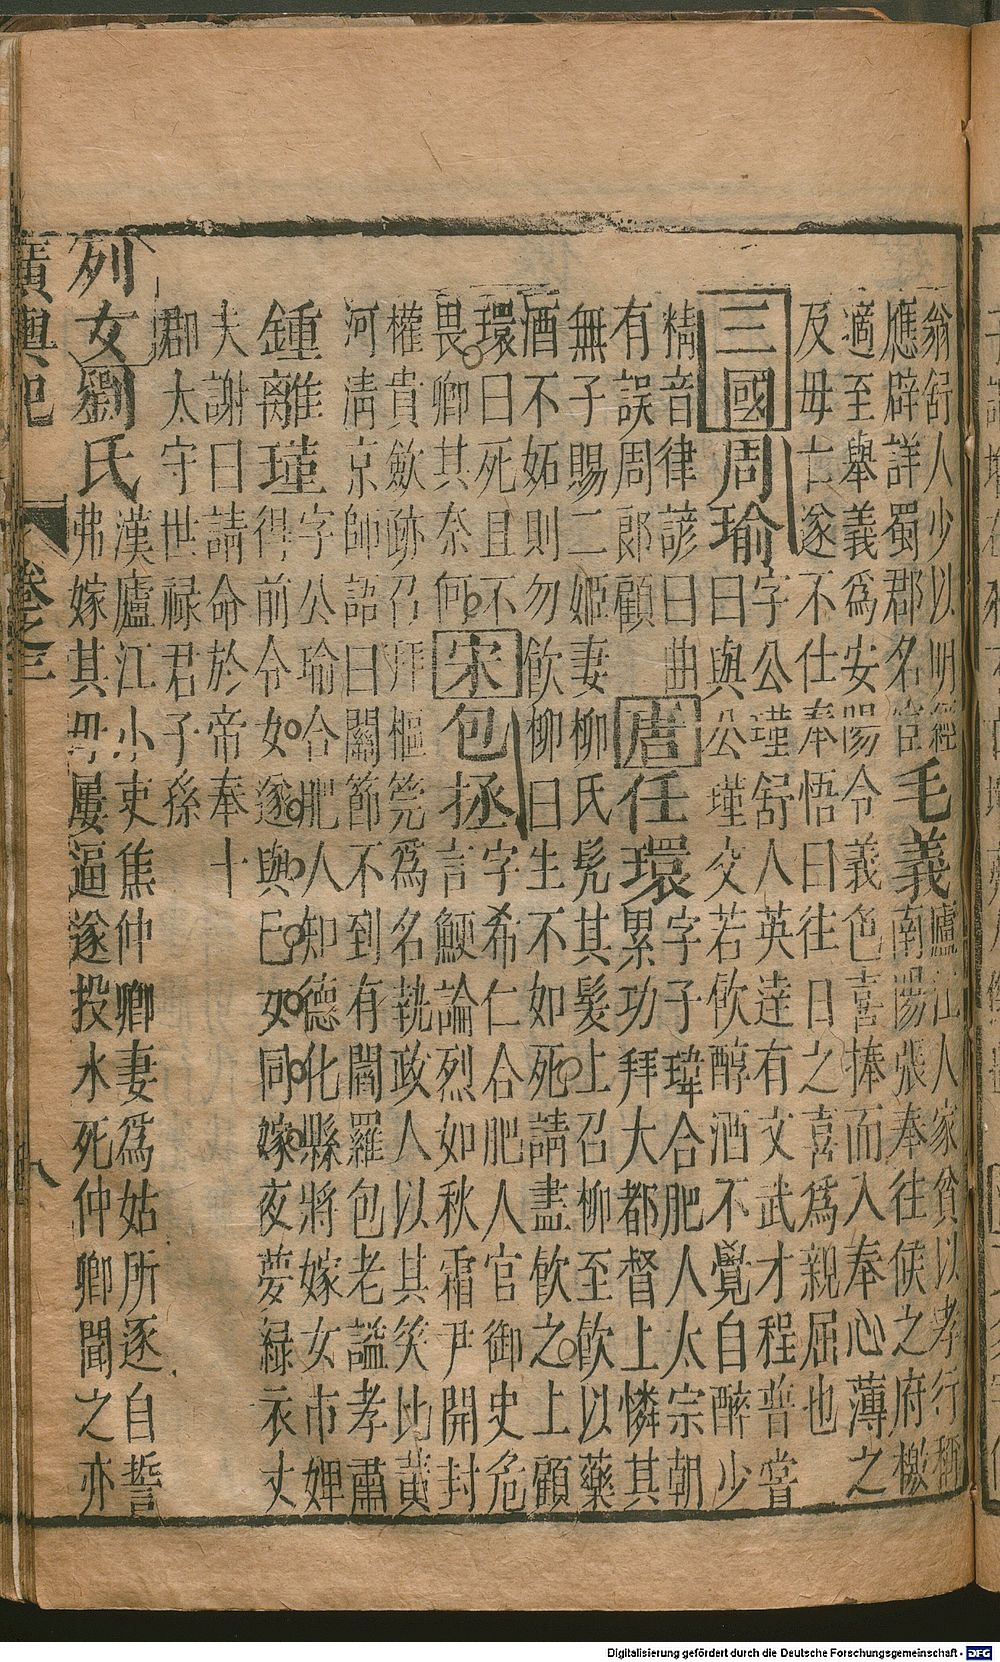 翁舒人少以明經
應辟詳蜀郡名宦
毛義
廬江人家貧以孝行稱
南陽張奉往候之府檄
適至舉義為安陽令義色喜捧而入奉心薄之
及母亡遂不仕奉悟曰往日之喜為親屈也
三國周瑜
字公瑾舒人英達有文武才程普嘗
曰與公瑾交若飲醇酒不覺自醉少
精音律諺曰曲
有誤周郎顧
唐任環
字子瑋合肥人太宗朝
累功拜大都督上憐其
無子賜二姬妻柳氏髡其髮上召柳至飲以藥
酒不妬則勿飲柳曰生不如死請盡飲之上顧
環曰死且不
畏卿其奈何
宋包拯
字希仁合肥人官御史危
言鯁論烈如秋霜尹開封
權貴歛跡召拜樞筦為名執政人以其笑比黃
河清京師語曰關節不到有閻羅包老謚孝肅
鍾離瑾
字公瑜合肥人知德化縣將嫁女市婢
得前令女遂與巳女同嫁夜夢綠衣丈
夫謝曰請命於帝奉十
郡太守世祿君子孫
列女劉氏
漢廬江小吏焦仲卿妻為姑所逐自誓
弗嫁其母屢逼遂投水死仲卿聞之亦
廣輿記 卷之三 八
Digitalisierung gefördert durch die Deutsche Forschungsgemeinschaft - DFG